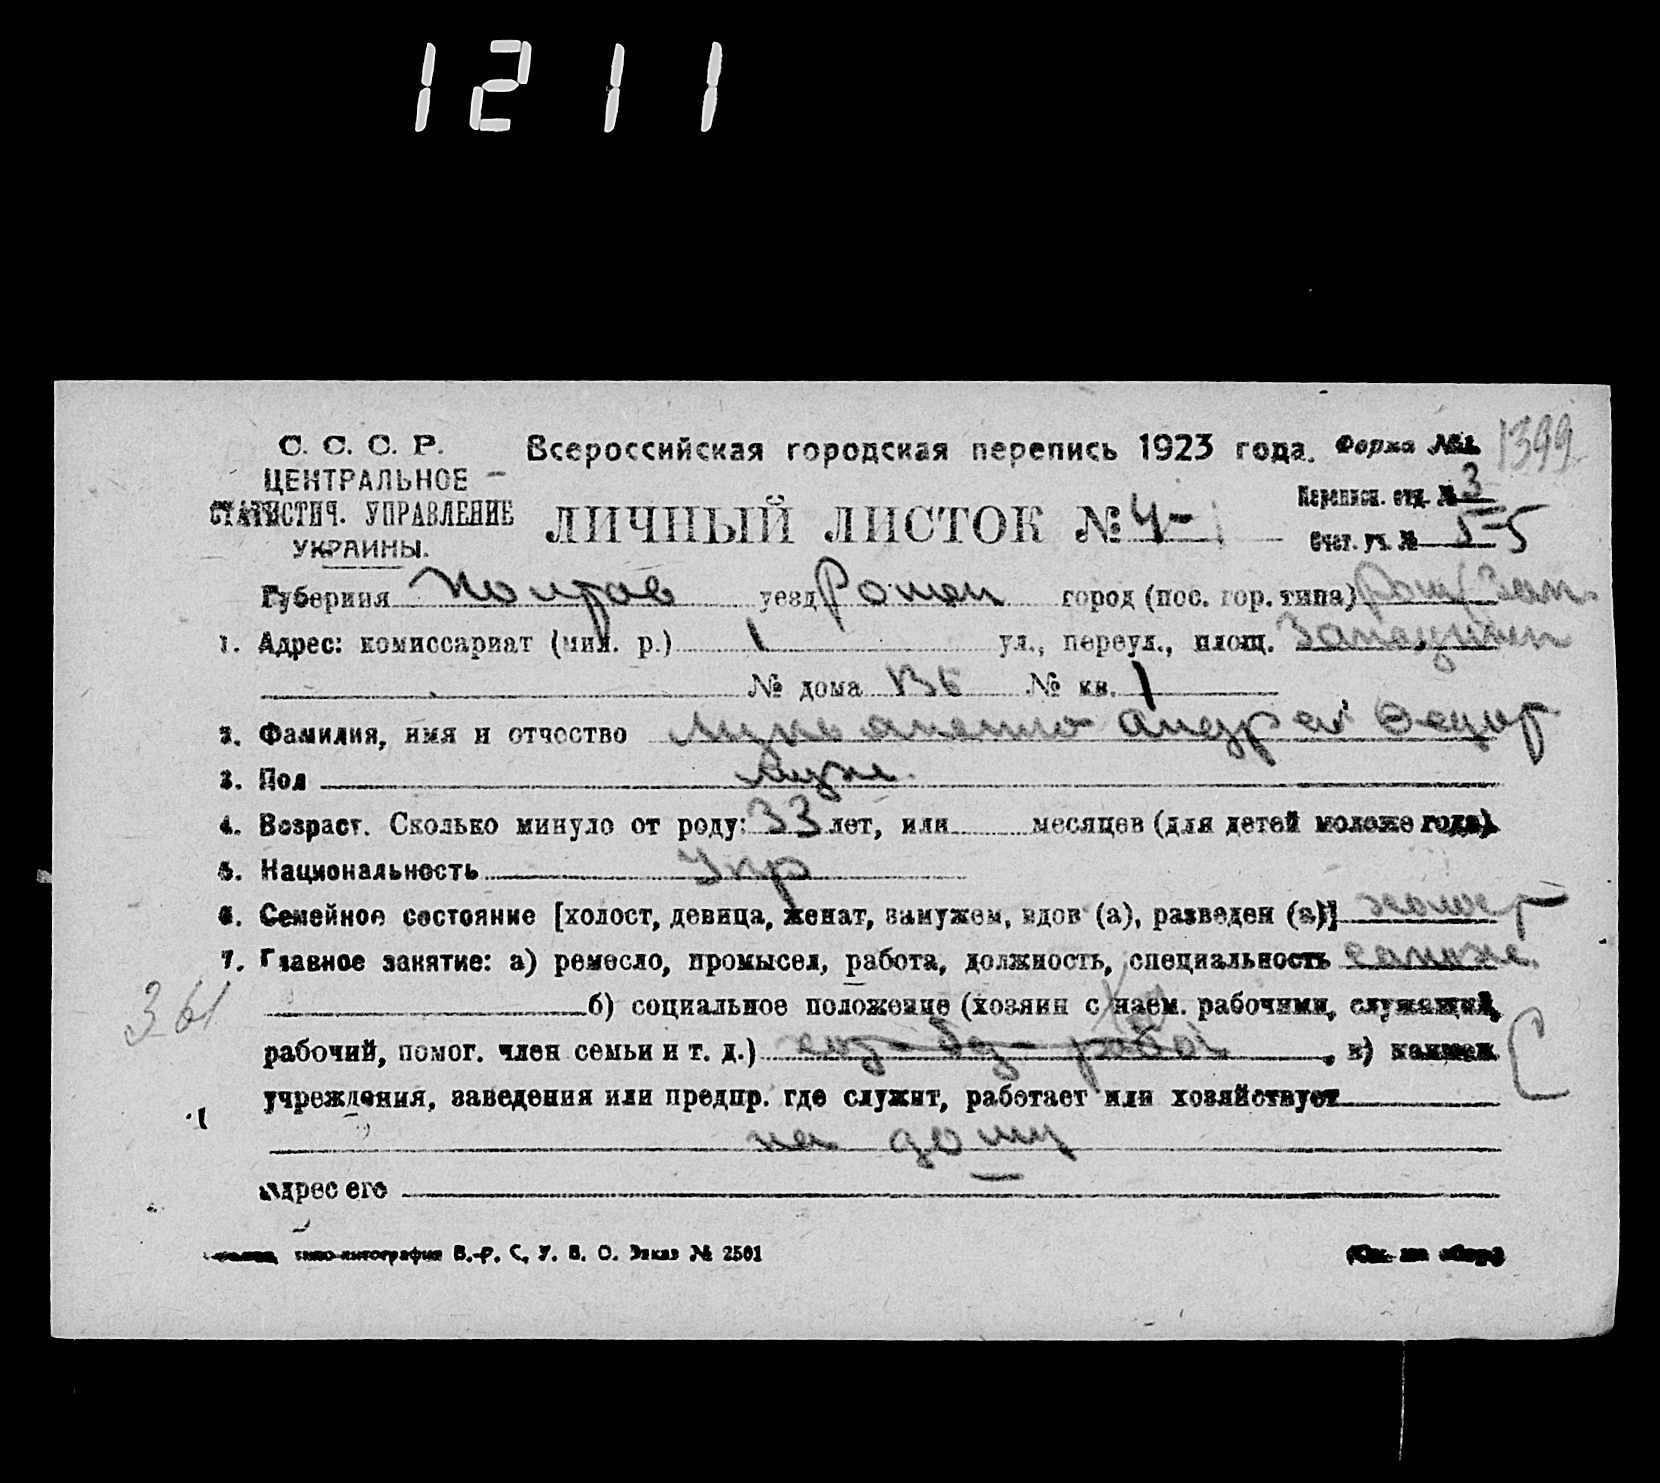 1211
С. С. С. Р.
ЦЕНТРАЛЬНОЕ
СТАТИСТИЧ. УПРАВЛЕНИЕ
УКРАИНЫ.
Всероссийская городская перепись 1923 года. Форма №1.
1399
ЛИЧНЫЙ ЛИСТОК № 4-
Переписн. отд. № 3
Счет. уч. № 5-5
Губерния Полтав уезд Ромен город (пос. гор. типа) Ром
1. Адрес: комиссариат (мил. р.) 1 ул., переул., площ.
№ дома № кв. 1
2. Фамилия, имя и отчество Андрей
3. Пол муж.
4. Возраст. Сколько минуло от роду: 33 лет, или месяцев (для детей моложе года).
5. Национальность Укр
6. Семейное состояние [холост, девица, женат, замужем, вдов (а), разведен (а)] холост
7. Главное занятие: а) ремесло, промысел, работа, должность, специальность сапожн.
361
б) социальное положение (хозяин с наем. рабочими, служащий,
рабочий, помог. член семьи и т. д.) , в) наимен.
учреждения, заведения или предпр. где служит, работает или хозяйствует
на дому
Адрес его
В.-Р. С. У. В. О. Заказ № 2501
(См. на обор.)